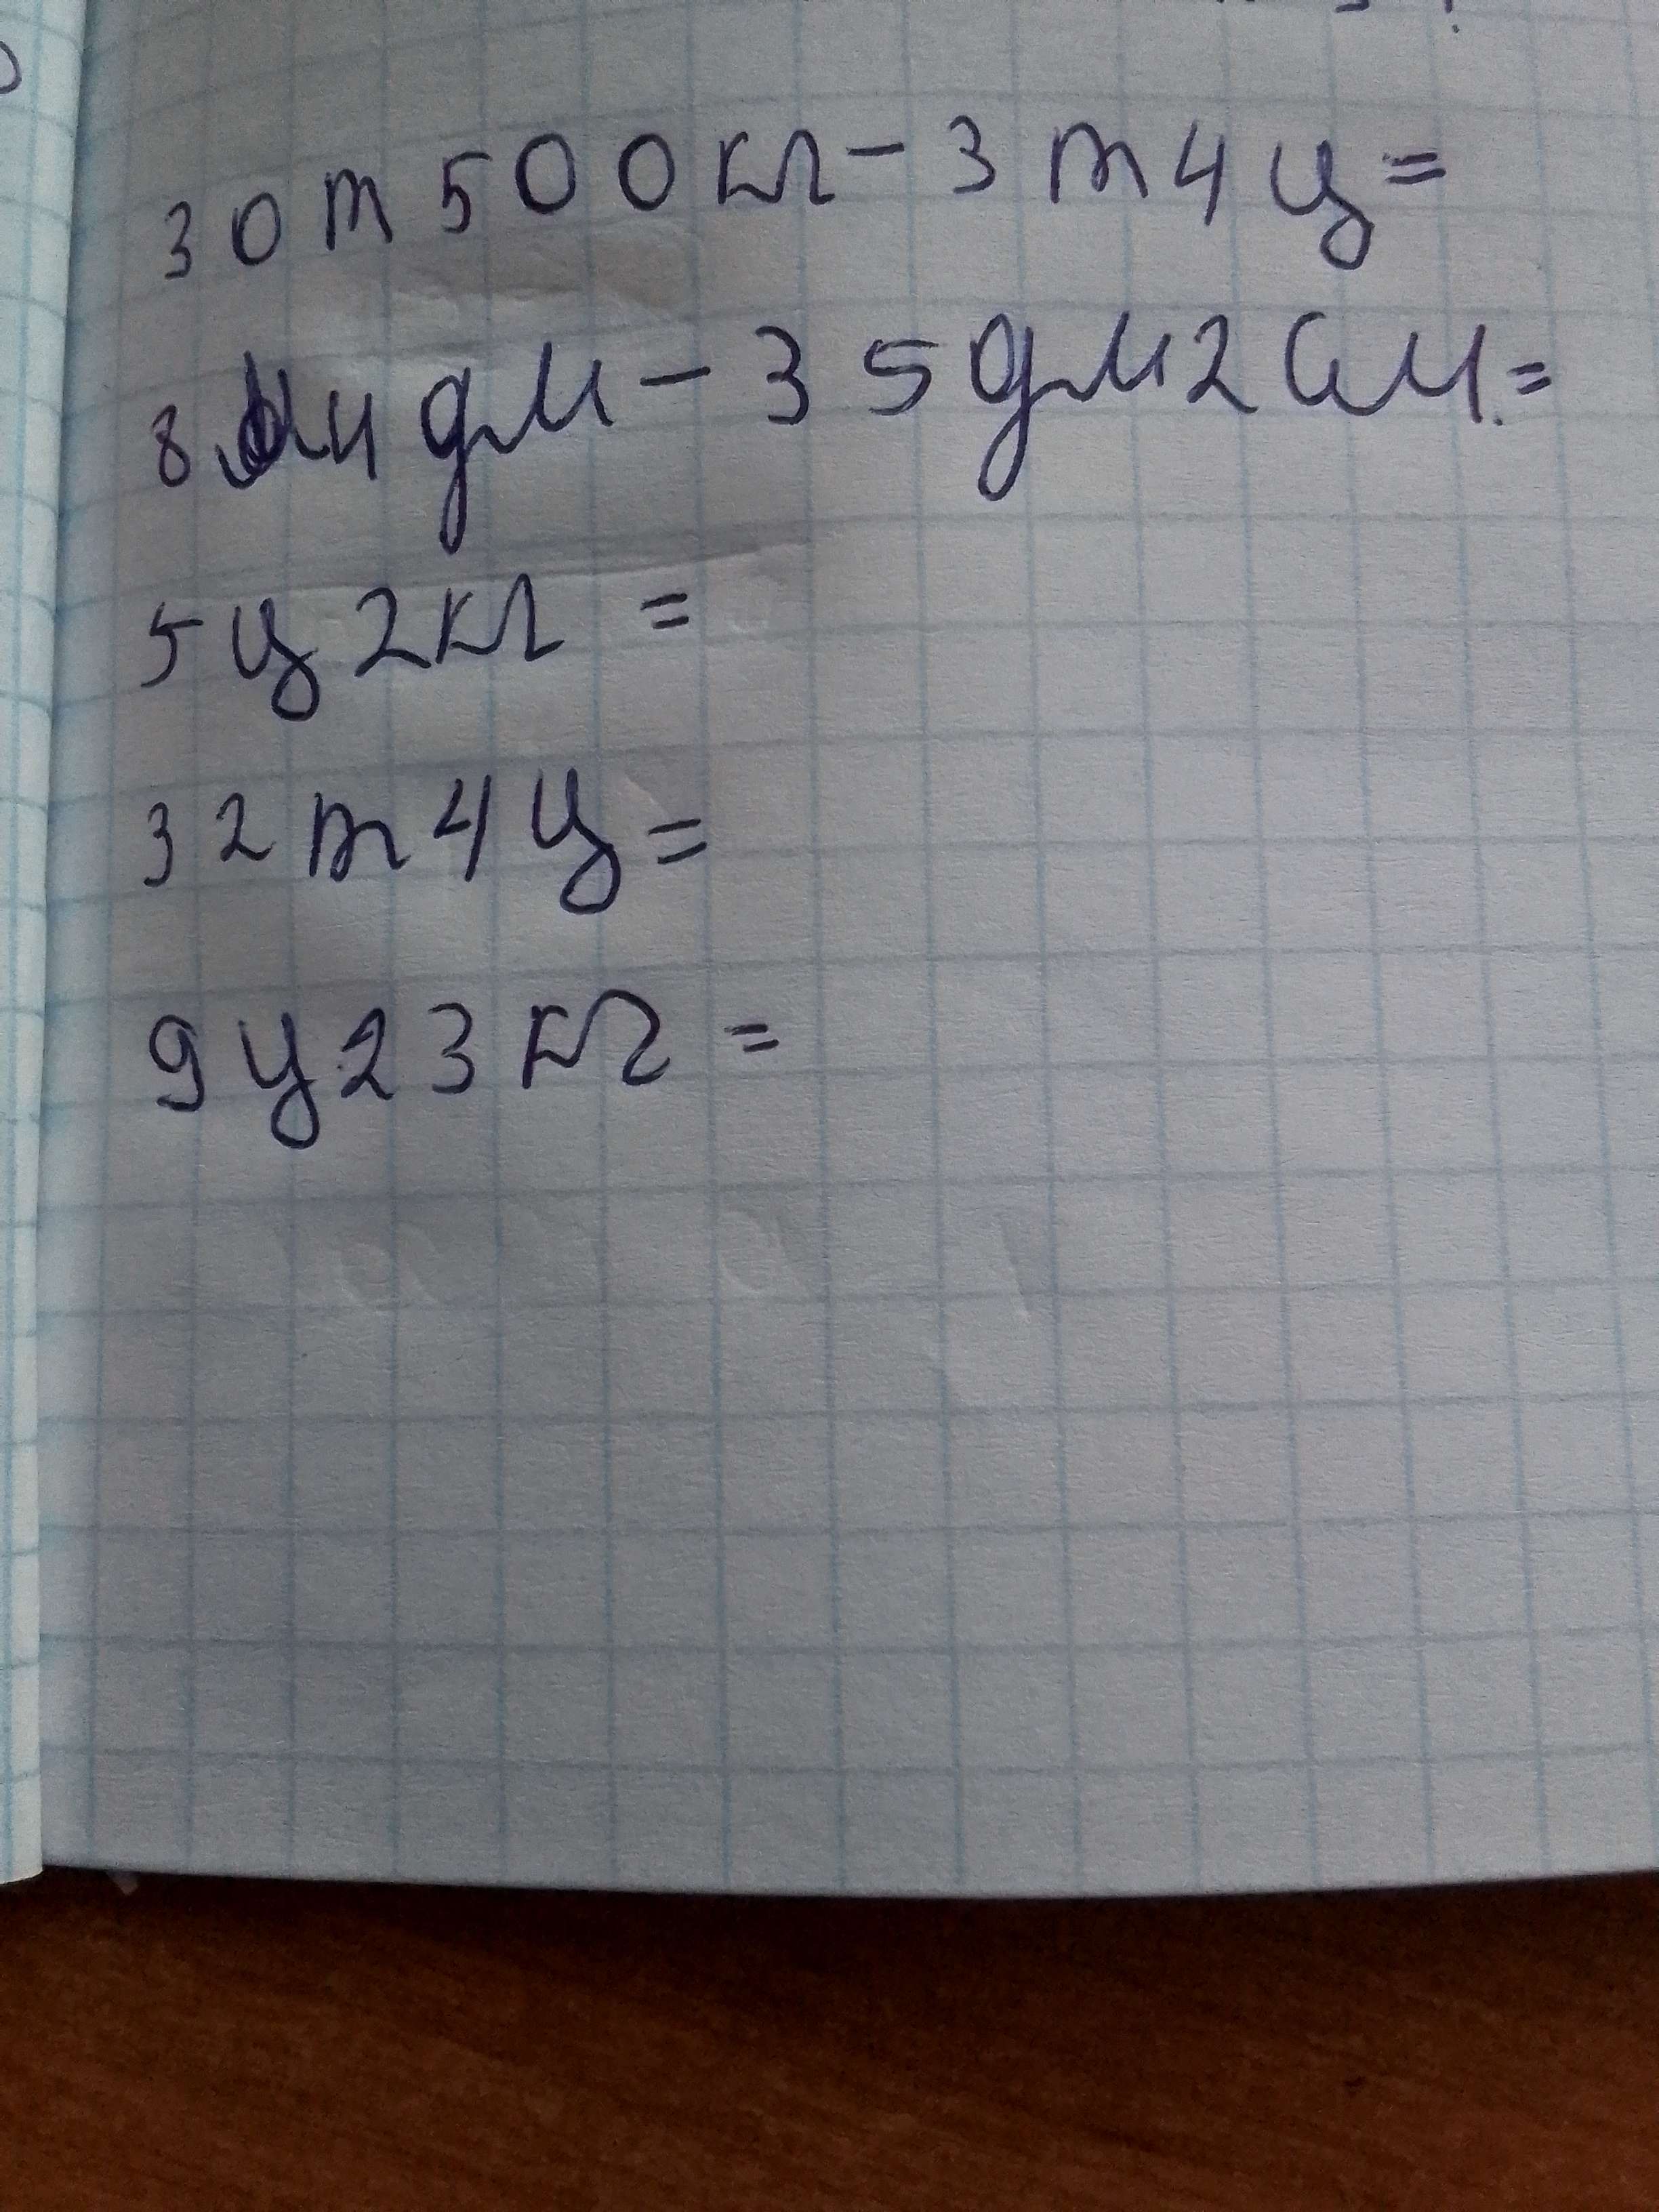 30 т 500 кг - 3 т 4 ц =
8 м 4 дм - 35 дм 2 см =
5 ц 2 кг =
32 т 4 ц =
9 ц 23 кг =